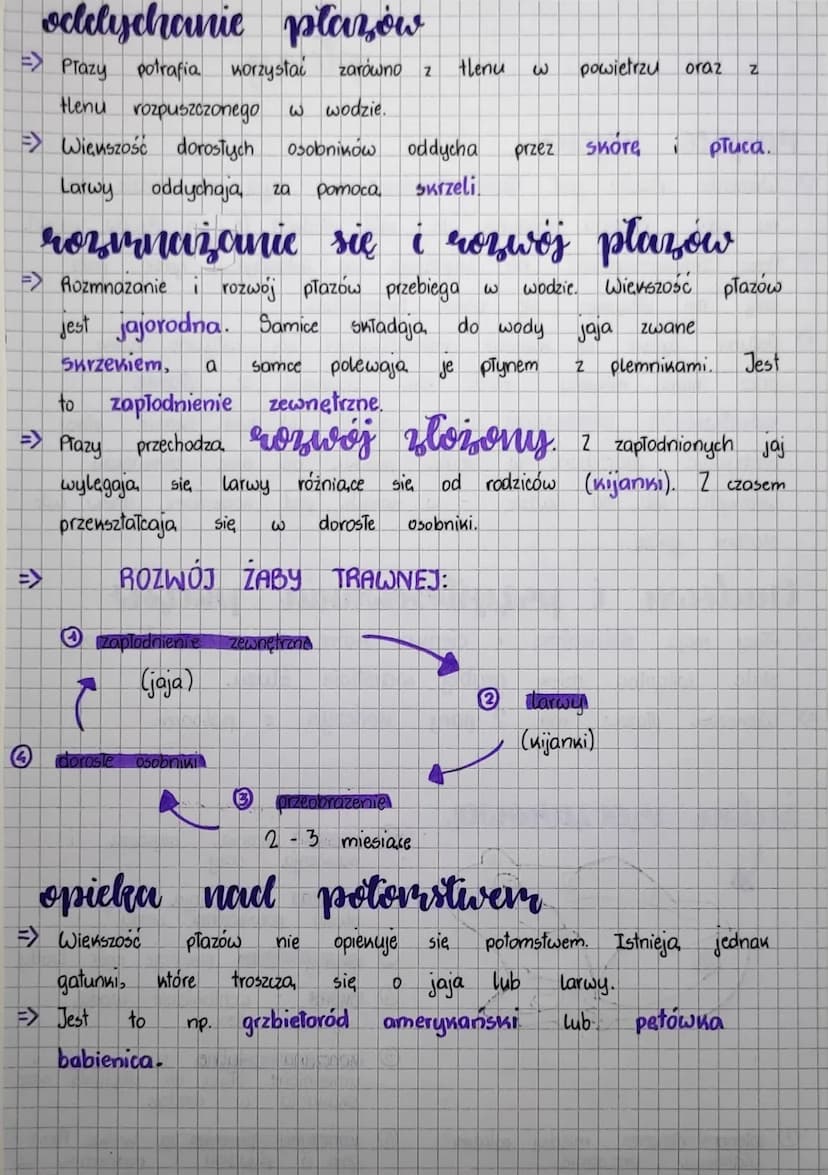 oddychanie płazów
=> Płazy potrafią korzystać zarówno z tlenu w powietrzu oraz z
tlenu rozpuszczonego w wodzie.
=> Większość dorosłych osobników oddycha przez skórę i płuca.
Larwy oddychają za pomocą skrzeli.
rozmnażanie się i rozwój płazów
=> Rozmnażanie i rozwój płazów przebiega w wodzie. Większość płazów
jest jajorodna. Samice składają do wody jaja zwane
skrzekiem, a samce polewają je płynem z plemnikami. Jest
to zapłodnienie zewnętrzne.
=> Płazy przechodzą rozwój złożony. Z zapłodnionych jaj
wylęgają się larwy różniące się od rodziców (kijanki). Z czasem
przekształcają się w dorosłe osobniki.
=> ROZWÓJ ŻABY TRAWNEJ:
① zapłodnienie zewnętrzne
(jaja)
② larwy
(kijanki)
④ dorosłe osobniki
③ przeobrażenie
2 - 3 miesiące
opieka nad potomstwem
=> Większość płazów nie opiekuje się potomstwem. Istnieją jednak
gatunki, które troszczą się o jaja lub larwy.
=> Jest to np. grzbietoród amerykański lub pętówka
babienica.